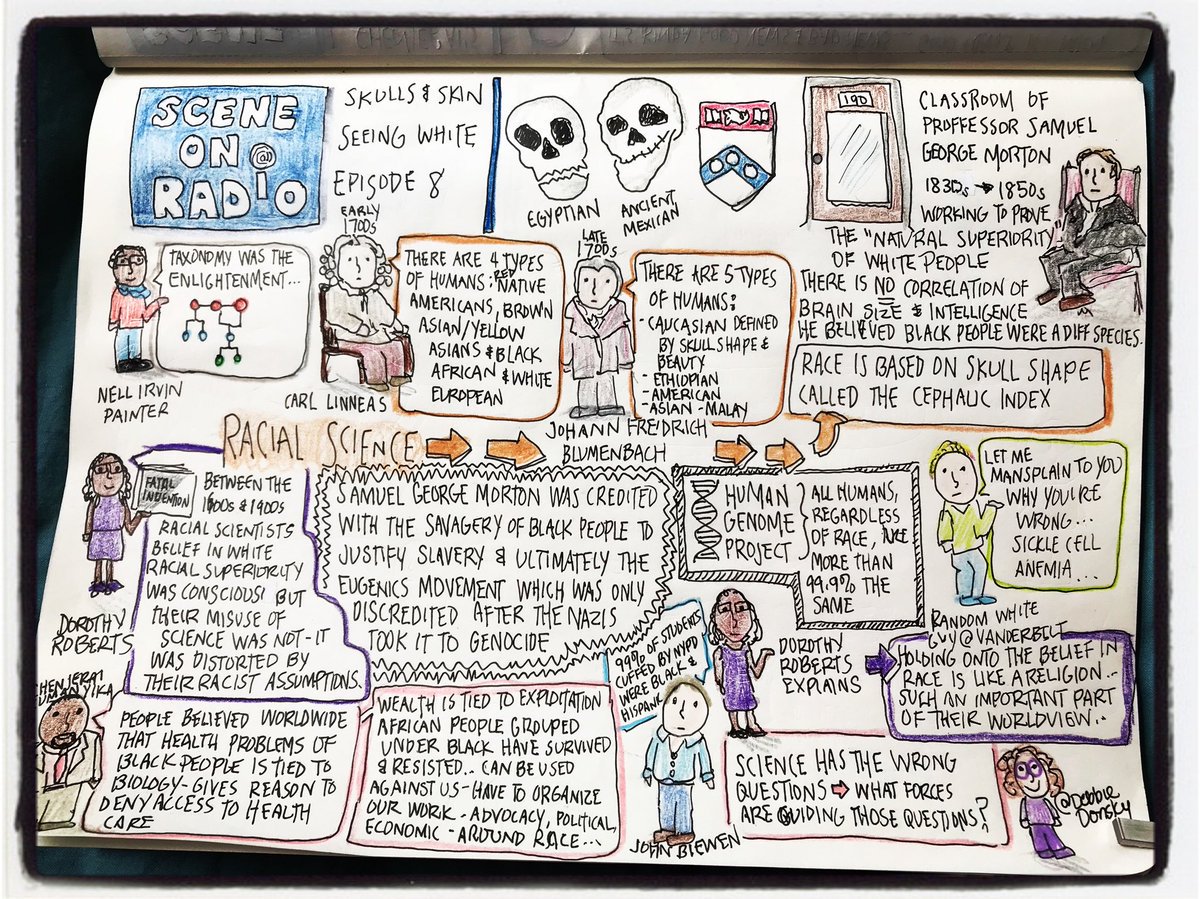 SCENE
ON
RADIO
SKULLS & SKIN
SEEING WHITE
EPISODE 8
EGYPTIAN
ANCIENT
MEXICAN
190
CLASSROOM OF
PROFFESSOR SAMUEL
GEORGE MORTON
1830s → 1850s
WORKING TO PROVE
THE "NATURAL SUPERIORITY"
OF WHITE PEOPLE
THERE IS NO CORRELATION OF
BRAIN SIZE & INTELLIGENCE
HE BELIEVED BLACK PEOPLE WERE A DIFF SPECIES.
TAXONOMY WAS THE
ENLIGHTENMENT...
NELL IRVIN
PAINTER
EARLY
1700s
CARL LINNEAS
THERE ARE 4 TYPES
OF HUMANS: RED NATIVE
AMERICANS, BROWN
ASIAN/YELLOW
ASIANS & BLACK
AFRICAN & WHITE
EUROPEAN
LATE
1700s
JOHANN FREIDRICH
BLUMENBACH
THERE ARE 5 TYPES
OF HUMANS:
- CAUCASIAN DEFINED
BY SKULL SHAPE &
BEAUTY
- ETHIOPIAN
- AMERICAN
- ASIAN - MALAY
RACE IS BASED ON SKULL SHAPE
CALLED THE CEPHALIC INDEX
RACIAL SCIENCE
FATAL
INVENTION
DOROTHY
ROBERTS
BETWEEN THE
1600s & 1900s
RACIAL SCIENTISTS
BELIEF IN WHITE
RACIAL SUPERIORITY
WAS CONSCIOUS! BUT
THEIR MISUSE OF
SCIENCE WAS NOT - IT
WAS DISTORTED BY
THEIR RACIST ASSUMPTIONS.
SAMUEL GEORGE MORTON WAS CREDITED
WITH THE SAVAGERY OF BLACK PEOPLE TO
JUSTIFY SLAVERY & ULTIMATELY THE
EUGENICS MOVEMENT WHICH WAS ONLY
DISCREDITED AFTER THE NAZIS
TOOK IT TO GENOCIDE
HUMAN
GENOME
PROJECT
ALL HUMANS,
REGARDLESS
OF RACE, ARE
MORE THAN
99.9% THE
SAME
LET ME
MANSPLAIN TO YOU
WHY YOU'RE
WRONG...
SICKLE CELL
ANEMIA...
RANDOM WHITE
GUY @ VANDERBILT
DOROTHY
ROBERTS
EXPLAINS
HOLDING ONTO THE BELIEF IN
RACE IS LIKE A RELIGION...
SUCH AN IMPORTANT PART
OF THEIR WORLDVIEW...
PEOPLE BELIEVED WORLDWIDE
THAT HEALTH PROBLEMS OF
BLACK PEOPLE IS TIED TO
BIOLOGY - GIVES REASON TO
DENY ACCESS TO HEALTH
CARE
WEALTH IS TIED TO EXPLOITATION
AFRICAN PEOPLE GROUPED
UNDER BLACK HAVE SURVIVED
& RESISTED... CAN BE USED
AGAINST US - HAVE TO ORGANIZE
OUR WORK - ADVOCACY, POLITICAL,
ECONOMIC - AROUND RACE...
99% OF STUDENTS
CUFFED BY NYPD
WERE BLACK &
HISPANIC
JOHN BIEWEN
SCIENCE HAS THE WRONG
QUESTIONS ➡ WHAT FORCES
ARE GUIDING THOSE QUESTIONS?
@Debbie
Donsky